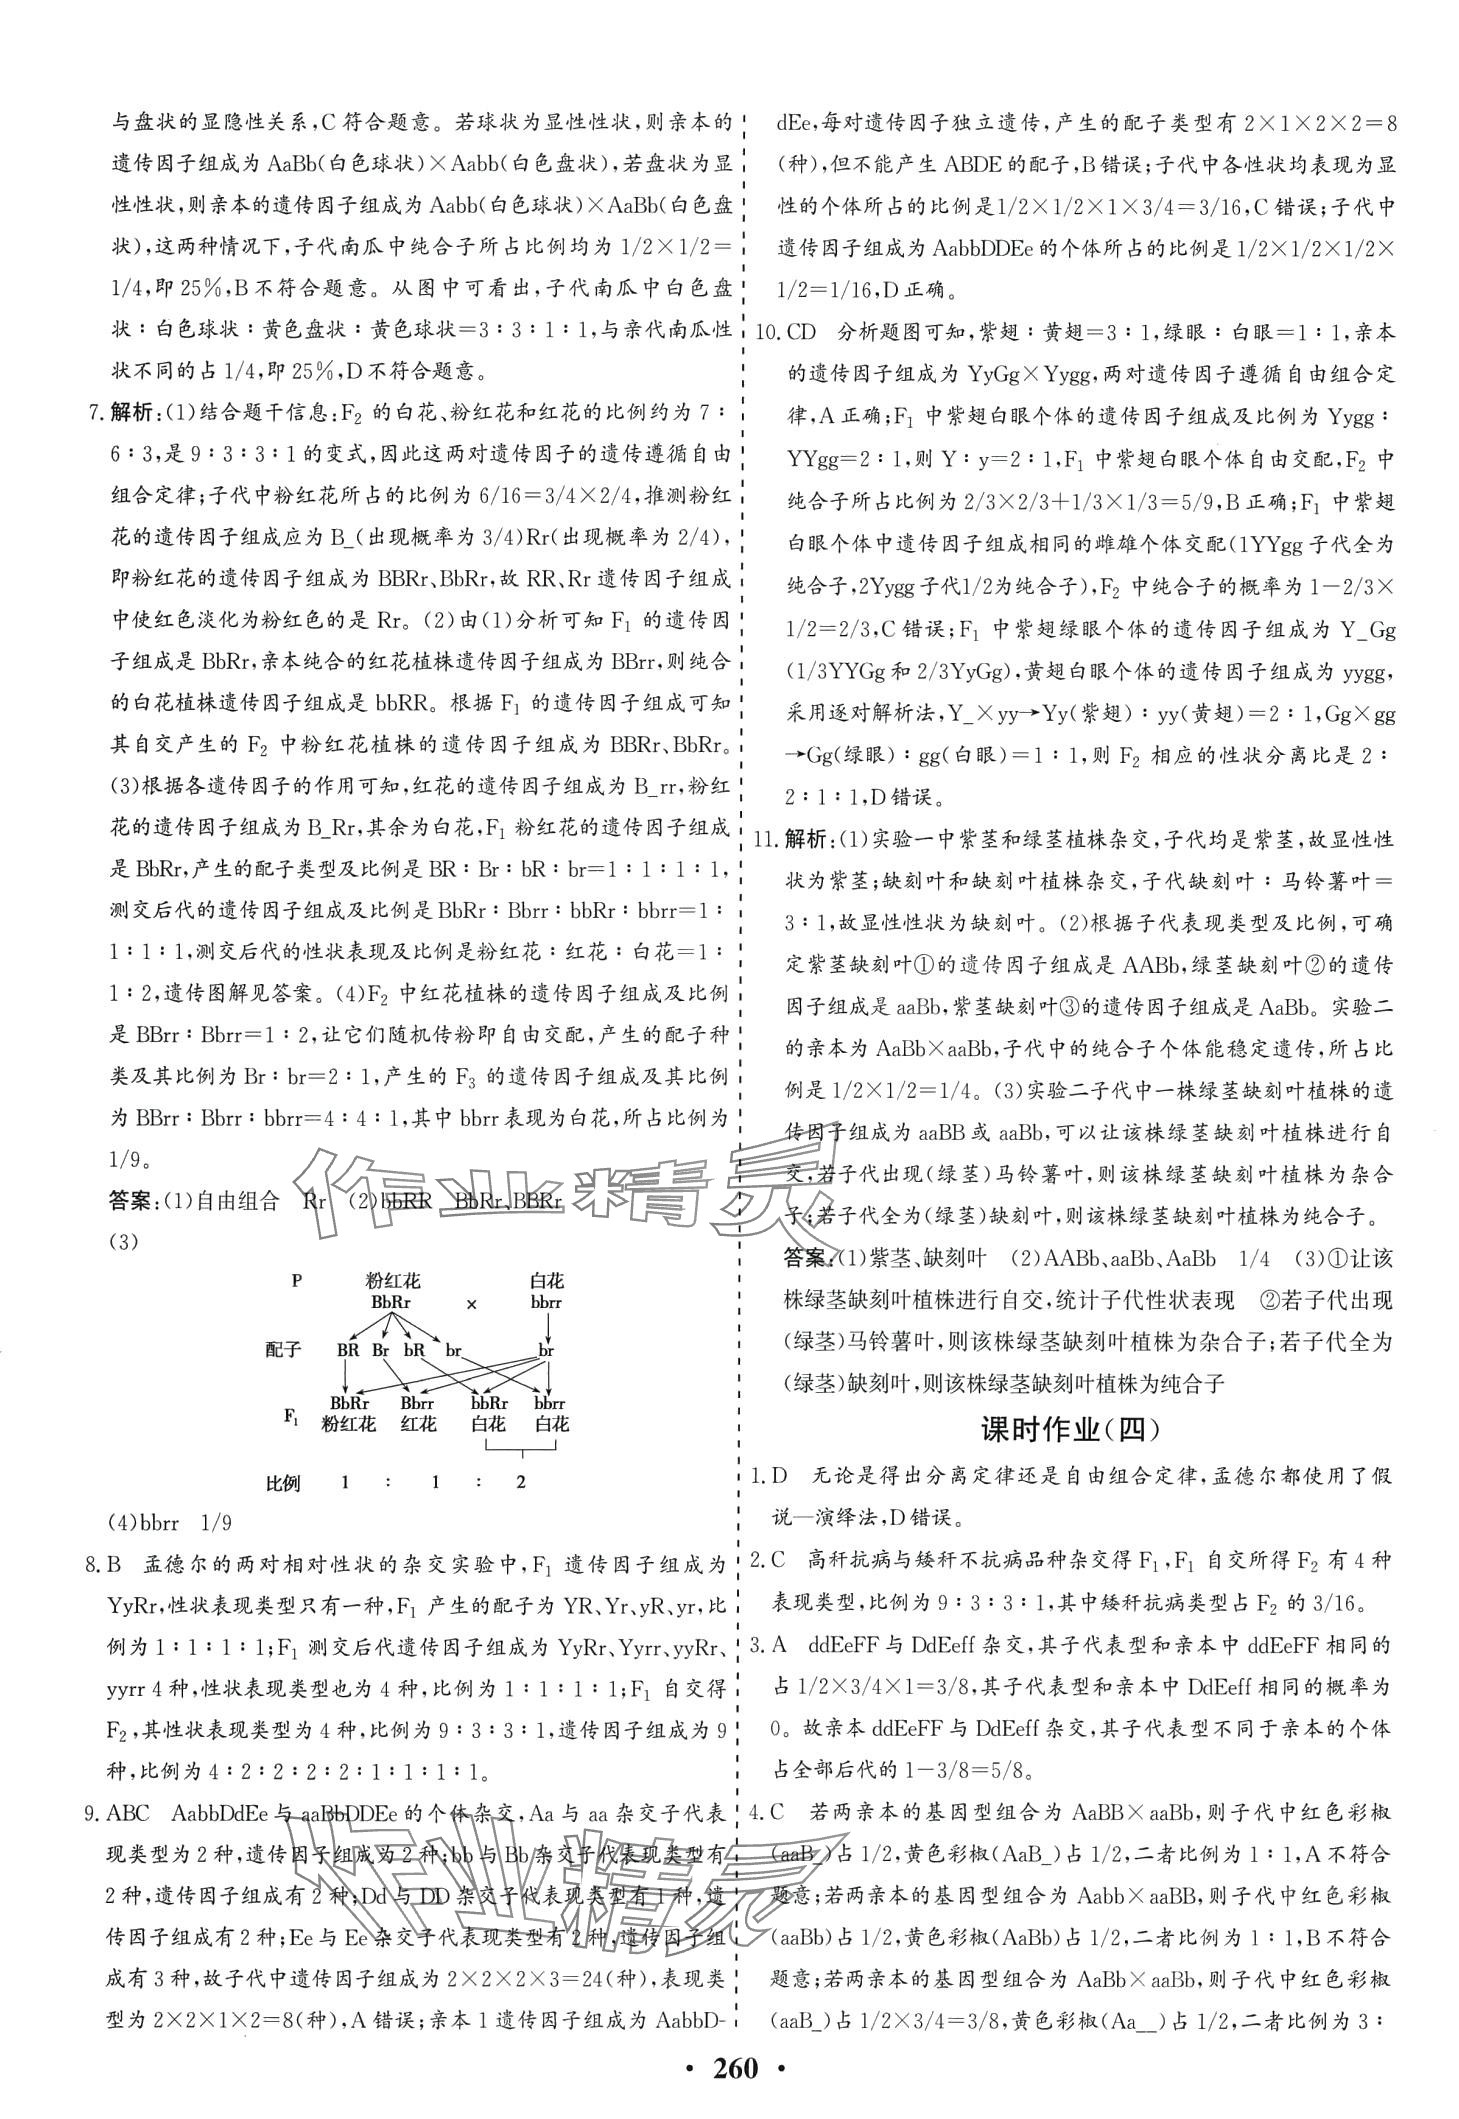 与盘状的显隐性关系,C 符合题意。若球状为显性性状,则亲本的
遗传因子组成为 AaBb(白色球状)×Aabb(白色盘状),若盘状为显
性性状,则亲本的遗传因子组成为 Aabb(白色球状)×AaBb(白色盘
状),这两种情况下,子代南瓜中纯合子所占比例均为 1/2×1/2=
1/4,即 25%,B 不符合题意。从图中可看出,子代南瓜中白色盘
状∶白色球状∶黄色盘状∶黄色球状=3∶3∶1∶1,与亲代南瓜性
状不同的占 1/4,即 25%,D 不符合题意。
7. 解析:(1)结合题干信息:F₂ 的白花、粉红花和红花的比例约为 7∶
6∶3,是 9∶3∶3∶1 的变式,因此这两对遗传因子的遗传遵循自由
组合定律;子代中粉红花所占的比例为 6/16=3/4×2/4,推测粉红
花的遗传因子组成应为 B_(出现概率为 3/4)Rr(出现概率为 2/4),
即粉红花的遗传因子组成为 BBRr、BbRr,故 RR、Rr 遗传因子组成
中使红色淡化为粉红色的是 Rr。(2)由(1)分析可知 F₁ 的遗传因
子组成是 BbRr,亲本纯合的红花植株遗传因子组成为 BBrr,则纯合
的白花植株遗传因子组成是 bbRR。根据 F₁ 的遗传因子组成可知
其自交产生的 F₂ 中粉红花植株的遗传因子组成为 BBRr、BbRr。
(3)根据各遗传因子的作用可知,红花的遗传因子组成为 B_rr,粉红
花的遗传因子组成为 B_Rr,其余为白花,F₁ 粉红花的遗传因子组成
是 BbRr,产生的配子类型及比例是 BR∶Br∶bR∶br=1∶1∶1∶1,
测交后代的遗传因子组成及比例是 BbRr∶Bbrr∶bbRr∶bbrr=1∶
1∶1∶1,测交后代的性状表现及比例是粉红花∶红花∶白花=1∶
1∶2,遗传图解见答案。(4)F₂ 中红花植株的遗传因子组成及比例
是 BBrr∶Bbrr=1∶2,让它们随机传粉即自由交配,产生的配子种
类及其比例为 Br∶br=2∶1,产生的 F₃ 的遗传因子组成及其比例
为 BBrr∶Bbrr∶bbrr=4∶4∶1,其中 bbrr 表现为白花,所占比例为
1/9。
答案:(1)自由组合 Rr (2)bbRR BbRr、BBRr
(3)
P 粉红花 白花
BbRr × bbrr
配子 BR Br bR br br
BbRr Bbrr bbRr bbrr
F₁ 粉红花 红花 白花 白花
比例 1 ∶ 1 ∶ 2
(4)bbrr 1/9
8. B 孟德尔的两对相对性状的杂交实验中,F₁ 遗传因子组成为
YyRr,性状表现类型只有一种,F₁ 产生的配子为 YR、Yr、yR、yr,比
例为 1∶1∶1∶1;F₁ 测交后代遗传因子组成为 YyRr、Yyrr、yyRr、
yyrr 4 种,性状表现类型也为 4 种,比例为 1∶1∶1∶1;F₁ 自交得
F₂,其性状表现类型为 4 种,比例为 9∶3∶3∶1,遗传因子组成为 9
种,比例为 4∶2∶2∶2∶2∶1∶1∶1∶1。
9. ABC AabbDdEe 与 aaBbDDEe 的个体杂交,Aa 与 aa 杂交子代表
现类型为 2 种,遗传因子组成为 2 种;bb 与 Bb 杂交子代表现类型有
2 种,遗传因子组成有 2 种;Dd 与 DD 杂交子代表现类型有 1 种,遗
传因子组成有 2 种;Ee 与 Ee 杂交子代表现类型有 2 种,遗传因子组
成有 3 种,故子代中遗传因子组成为 2×2×2×3=24(种),表现类
型为 2×2×1×2=8(种),A 错误;亲本 1 遗传因子组成为 AabbD-
dEe,每对遗传因子独立遗传,产生的配子类型有 2×1×2×2=8
(种),但不能产生 ABDE 的配子,B 错误;子代中各性状均表现为显
性的个体所占的比例是1/2×1/2×1×3/4=3/16,C 错误;子代中
遗传因子组成为 AabbDDEe 的个体所占的比例是 1/2×1/2×1/2×
1/2=1/16,D 正确。
10. CD 分析题图可知,紫翅∶黄翅=3∶1,绿眼∶白眼=1∶1,亲本
的遗传因子组成为 YyGg×Yygg,两对遗传因子遵循自由组合定
律,A 正确;F₁ 中紫翅白眼个体的遗传因子组成及比例为 Yygg∶
YYgg=2∶1,则 Y∶y=2∶1,F₁ 中紫翅白眼个体自由交配,F₂ 中
纯合子所占比例为 2/3×2/3+1/3×1/3=5/9,B 正确;F₁ 中紫翅
白眼个体中遗传因子组成相同的雌雄个体交配(1YYgg 子代全为
纯合子,2Yygg 子代1/2为纯合子),F₂ 中纯合子的概率为 1-2/3×
1/2=2/3,C 错误;F₁ 中紫翅绿眼个体的遗传因子组成为 Y_Gg
(1/3YYGg 和 2/3YyGg),黄翅白眼个体的遗传因子组成为 yygg,
采用逐对解析法,Y_×yy→Yy(紫翅)∶yy(黄翅)=2∶1,Gg×gg
→Gg(绿眼)∶gg(白眼)=1∶1,则 F₂ 相应的性状分离比是 2∶
2∶1∶1,D 错误。
11. 解析:(1)实验一中紫茎和绿茎植株杂交,子代均是紫茎,故显性性
状为紫茎;缺刻叶和缺刻叶植株杂交,子代缺刻叶∶马铃薯叶=
3∶1,故显性性状为缺刻叶。(2)根据子代表现类型及比例,可确
定紫茎缺刻叶①的遗传因子组成是 AABb,绿茎缺刻叶②的遗传
因子组成是 aaBb,紫茎缺刻叶③的遗传因子组成是 AaBb。实验二
的亲本为 AaBb×aaBb,子代中的纯合子个体能稳定遗传,所占比
例是 1/2×1/2=1/4。(3)实验二子代中一株绿茎缺刻叶植株的遗
传因子组成为 aaBB 或 aaBb,可以让该株绿茎缺刻叶植株进行自
交,若子代出现(绿茎)马铃薯叶,则该株绿茎缺刻叶植株为杂合
子;若子代全为(绿茎)缺刻叶,则该株绿茎缺刻叶植株为纯合子。
答案:(1)紫茎、缺刻叶 (2)AABb、aaBb、AaBb 1/4 (3)①让该
株绿茎缺刻叶植株进行自交,统计子代性状表现 ②若子代出现
(绿茎)马铃薯叶,则该株绿茎缺刻叶植株为杂合子;若子代全为
(绿茎)缺刻叶,则该株绿茎缺刻叶植株为纯合子
课时作业(四)
1. D 无论是得出分离定律还是自由组合定律,孟德尔都使用了假
说—演绎法,D 错误。
2. C 高秆抗病与矮秆不抗病品种杂交得 F₁,F₁ 自交所得 F₂ 有 4 种
表现类型,比例为 9∶3∶3∶1,其中矮秆抗病类型占 F₂ 的 3/16。
3. A ddEeFF 与 DdEeff 杂交,其子代表型和亲本中 ddEeFF 相同的
占 1/2×3/4×1=3/8,其子代表型和亲本中 DdEeff 相同的概率为
0。故亲本 ddEeFF 与 DdEeff 杂交,其子代表型不同于亲本的个体
占全部后代的 1-3/8=5/8。
4. C 若两亲本的基因型组合为 AaBB×aaBb,则子代中红色彩椒
(aaB_)占 1/2,黄色彩椒(AaB_)占 1/2,二者比例为 1∶1,A 不符合
题意;若两亲本的基因型组合为 Aabb×aaBB,则子代中红色彩椒
(aaBb)占 1/2,黄色彩椒(AaBb)占 1/2,二者比例为 1∶1,B 不符合
题意;若两亲本的基因型组合为 AaBb×aaBb,则子代中红色彩椒
(aaB_)占 1/2×3/4=3/8,黄色彩椒(Aa__)占 1/2,二者比例为 3∶
· 260 ·
作业精灵
作业精灵